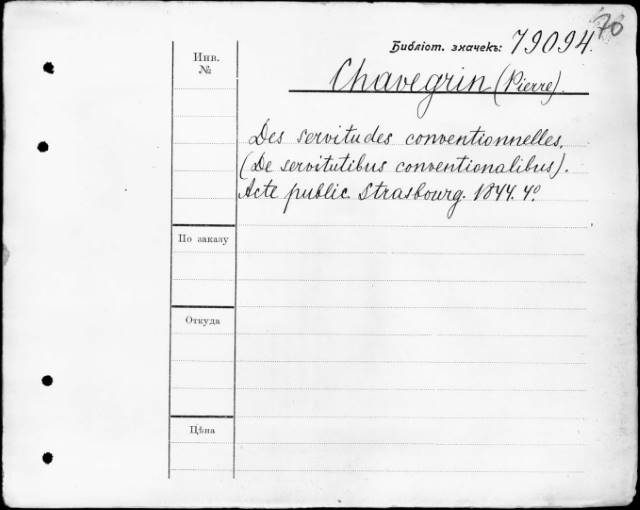 70
Библіот. значекъ: 79094.
Инв.
№
Chavegrin (Pierre).
Des servitudes conventionnelles.
(De servitutibus conventionalibus).
Acte public. Strasbourg. 1844. 4º.
По заказу
Откуда
Цѣна